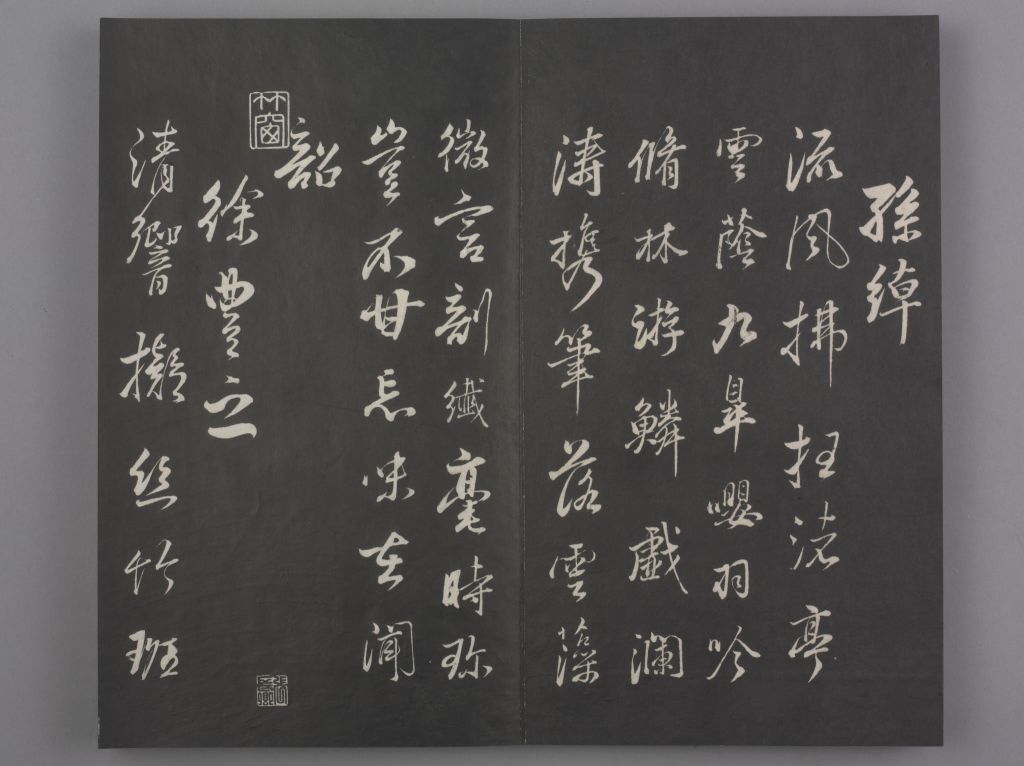 孫綽
流風拂枉渚亭
雲蔭九皋嚶羽吟
脩林游鱗戲瀾
濤携筆落雲藻
微言剖纖毫時珍
豈不甘忘味在聞
韶
徐豐之
清響擬絲竹班